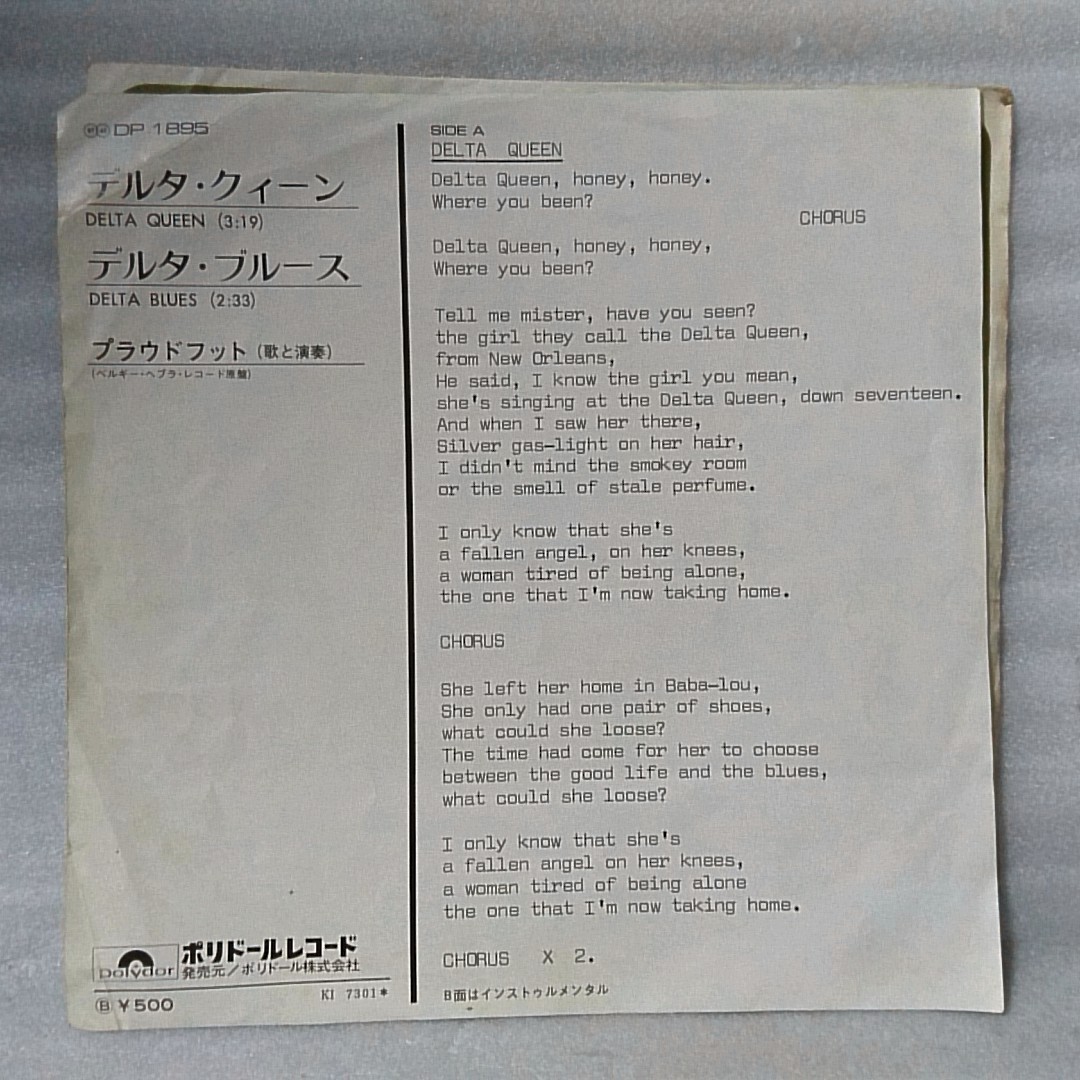 DP 1895
デルタ・クィーン
DELTA QUEEN (3:19)
デルタ・ブルース
DELTA BLUES (2:33)
プラウドフット (歌と演奏)
(ベルギー・ヘブラ・レコード原盤)
polydor
ポリドールレコード
発売元/ポリドール株式会社
KI 7301*
Ⓑ ¥500
SIDE A
DELTA QUEEN
Delta Queen, honey, honey.
Where you been?
CHORUS
Delta Queen, honey, honey,
Where you been?
Tell me mister, have you seen?
the girl they call the Delta Queen,
from New Orleans,
He said, I know the girl you mean,
she's singing at the Delta Queen, down seventeen.
And when I saw her there,
Silver gas-light on her hair,
I didn't mind the smokey room
or the smell of stale perfume.
I only know that she's
a fallen angel, on her knees,
a woman tired of being alone,
the one that I'm now taking home.
CHORUS
She left her home in Baba-lou,
She only had one pair of shoes,
what could she loose?
The time had come for her to choose
between the good life and the blues,
what could she loose?
I only know that she's
a fallen angel on her knees,
a woman tired of being alone
the one that I'm now taking home.
CHORUS X 2.
B面はインストゥルメンタル